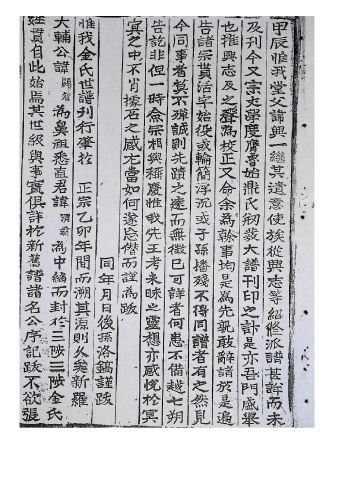 甲辰惟我堂父諱興一繼其遺意使族從興志等紹修派譜甚許而未
及刊今又宗大學度膺魯始鼎氏初發大譜刊印之計是亦吾門盛舉
也推興志及之聲爲校正又命余爲幹事均是爲先孰敢辭諸於是遍
告諸宗員活字始役或輪簡浮沉或子孫播殘不得同譜者有之然見
今同事者莫不殫誠則先蹟之遠而無徵已可詳者何患不備越七朔
告訖非但一時僉宗相與稱慶惟我先王考未昧之靈想亦感悅於冥
冥之中不肖據石之感尤當如何遂忘僭而謹爲跋
同年月日後孫洛鎬謹跋
惟我金氏世譜刊行肇於 正宗乙卯年間而溯其源則久矣新羅
大輔公諱閼智爲鼻祖悉直君諱爲中祖而封於三陟三陟金氏
姓貫自此始焉其世級與事實俱詳於新舊譜諸名公序記跋不欲張